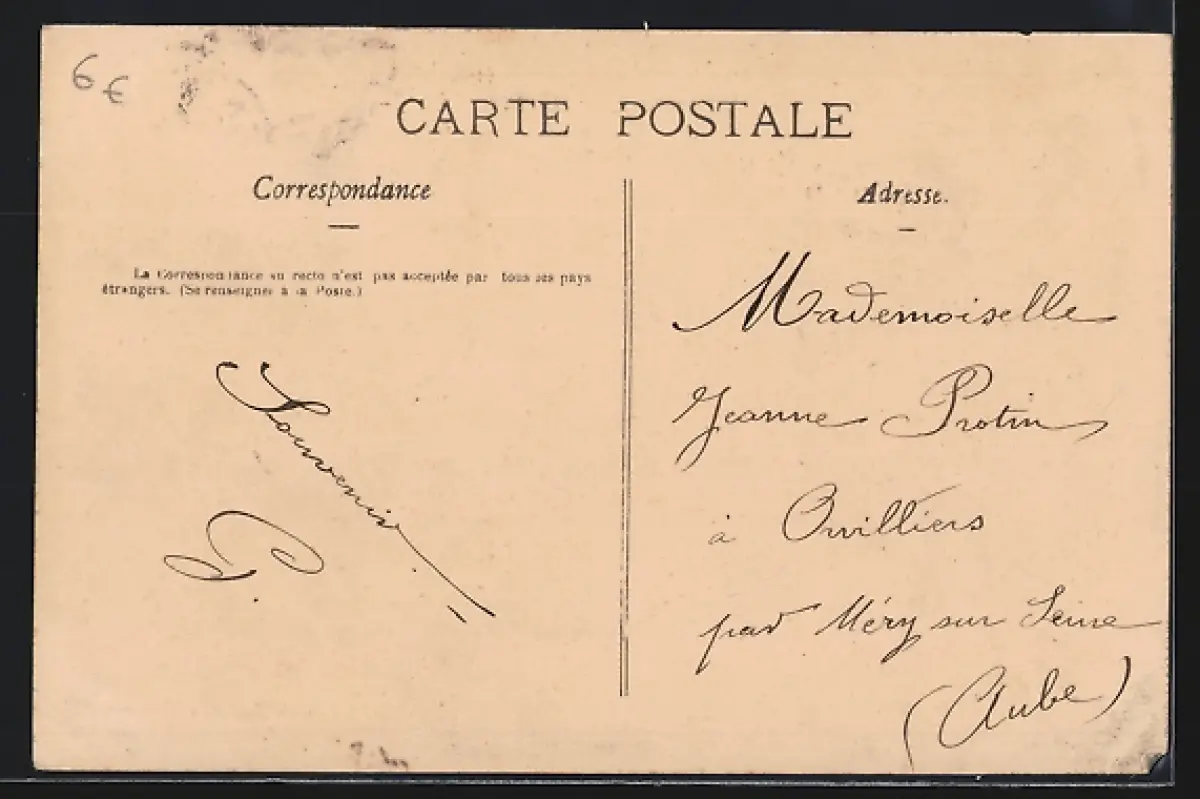 6 €
CARTE POSTALE
Correspondance
La Correspondance au recto n'est pas acceptée par tous les pays
étrangers. (Se renseigner à la Poste.)
Souvenir
G.
Adresse.
Mademoiselle
Jeanne Protin
à Orvilliers
par Méry sur Seine
(Aube)